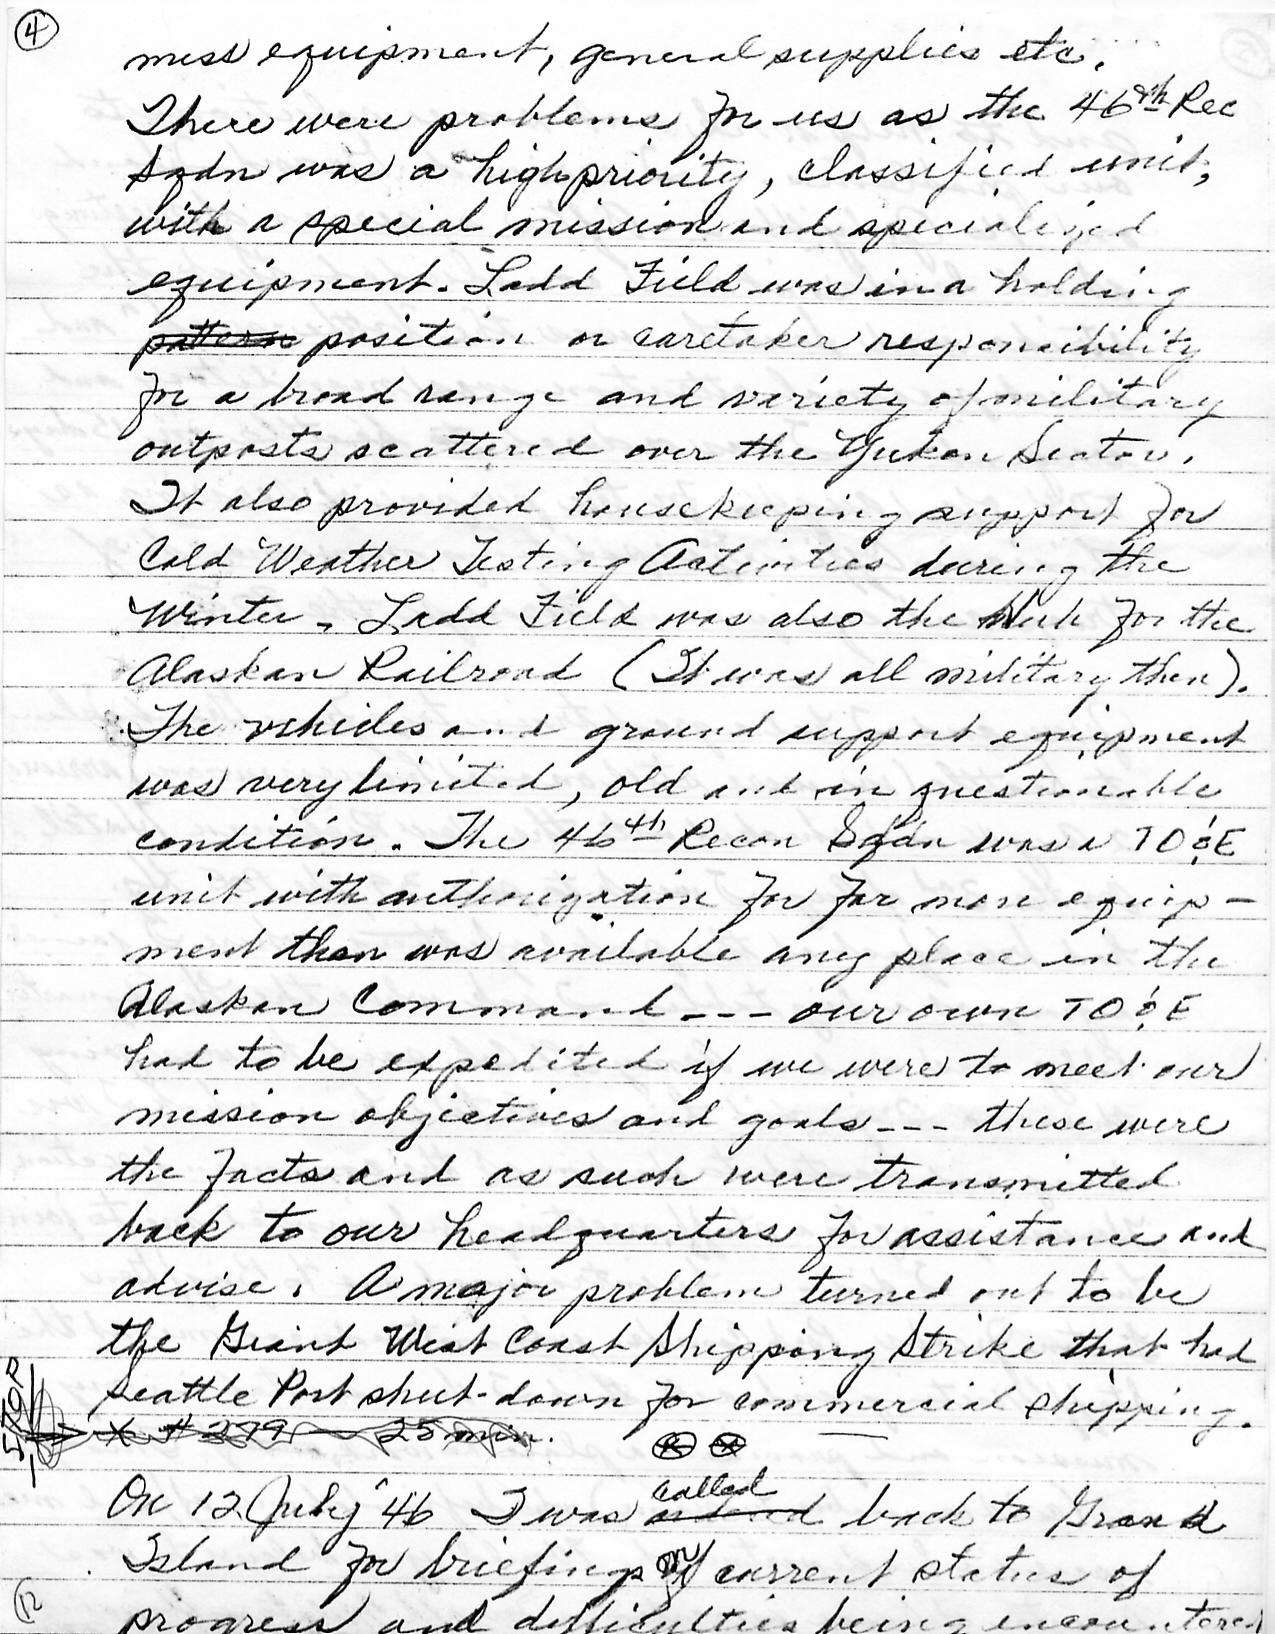 4
mess equipment, general supplies etc.
There were problems for us as the 46th Rec
Sqdn was a high priority, classified unit,
with a special mission and specialized
equipment. Ladd Field was in a holding
pattern position or caretaker responsibility
for a broad range and variety of military
outposts scattered over the Yukon Sector.
It also provided housekeeping support for
Cold Weather Testing Activities during the
Winter. Ladd Field was also the Hub for the
Alaskan Railroad (It was all military then).
The vehicles and ground support equipment
was very limited, old and in questionable
condition. The 46th Recon Sqdn was a TO&E
unit with authorization for far more equip-
ment than was available any place in the
Alaskan Command --- our own TO&E
had to be expedited if we were to meet our
mission objectives and goals --- these were
the facts and as such were transmitted
back to our headquarters for assistance and
advise. A major problem turned out to be
the Giant West Coast Shipping Strike that had
Seattle Port shut-down for commercial shipping.
STOP
X # 279 — 25 min.
called
On 12 July '46 I was back to Grand
Island for briefings on current status of
12
progress and difficulties being encountered